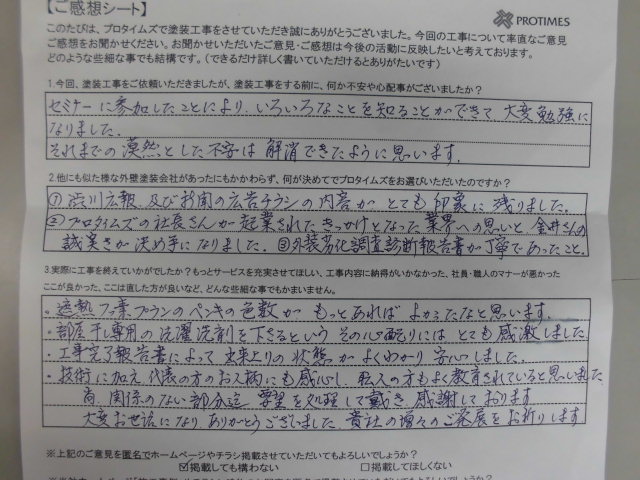 【ご感想シート】
PROTIMES
このたびは、プロタイムズで塗装工事をさせていただき誠にありがとうございました。今回の工事について率直なご意見
ご感想をお聞かせください。お聞かせいただいたご意見・ご感想は今後の活動に反映したいと考えております。
どのような些細な事でも結構です。(できるだけ詳しく書いていただけるとありがたいです)
1.今回、塗装工事をご依頼いただきましたが、塗装工事をする前に、何か不安や心配事がございましたか?
セミナーに参加したことにより、いろいろなことを知ることができて 大変勉強に
なりました.
それまでの漠然とした不安は解消できたように思います.
2.他にも似た様な外壁塗装会社があったにもかかわらず、何が決めてでプロタイムズをお選びいただいたのですか?
①渋川広報 及び新聞の広告チラシの内容がとても印象に残りました.
②プロタイムズの社長さんが起業されたきっかけとなった業界への思いと、金井さんの
誠実さが決め手になりました. ③外装劣化調査診断報告書が丁寧であったこと.
3.実際に工事を終えていかがでしたか?もっとサービスを充実させてほしい、工事内容に納得がいかなかった、社員・職人のマナーが悪かった
ここが良かった、ここは直した方が良いなど、どんな些細な事でもかまいません。
・遮熱 プランのペンキの色数がもっとあればよかったなと思います.
・部屋干し専用の洗濯洗剤を下さるという その心配りにはとても感激しました
・工事完了報告書によって 出来上りの状態がよくわかり安心しました.
・技術に加え、代表の方のお人柄にも感心し、 の方もよく教育されていると思いました.
尚、関係のない部分迄 を処理して戴き、感謝しております
大変お世話になりありがとうございました. 貴社の増々のご発展をお祈りします
※上記のご意見を匿名でホームページやチラシ掲載させていただいてもよろしいでしょうか?
☑掲載しても構わない □掲載してほしくない